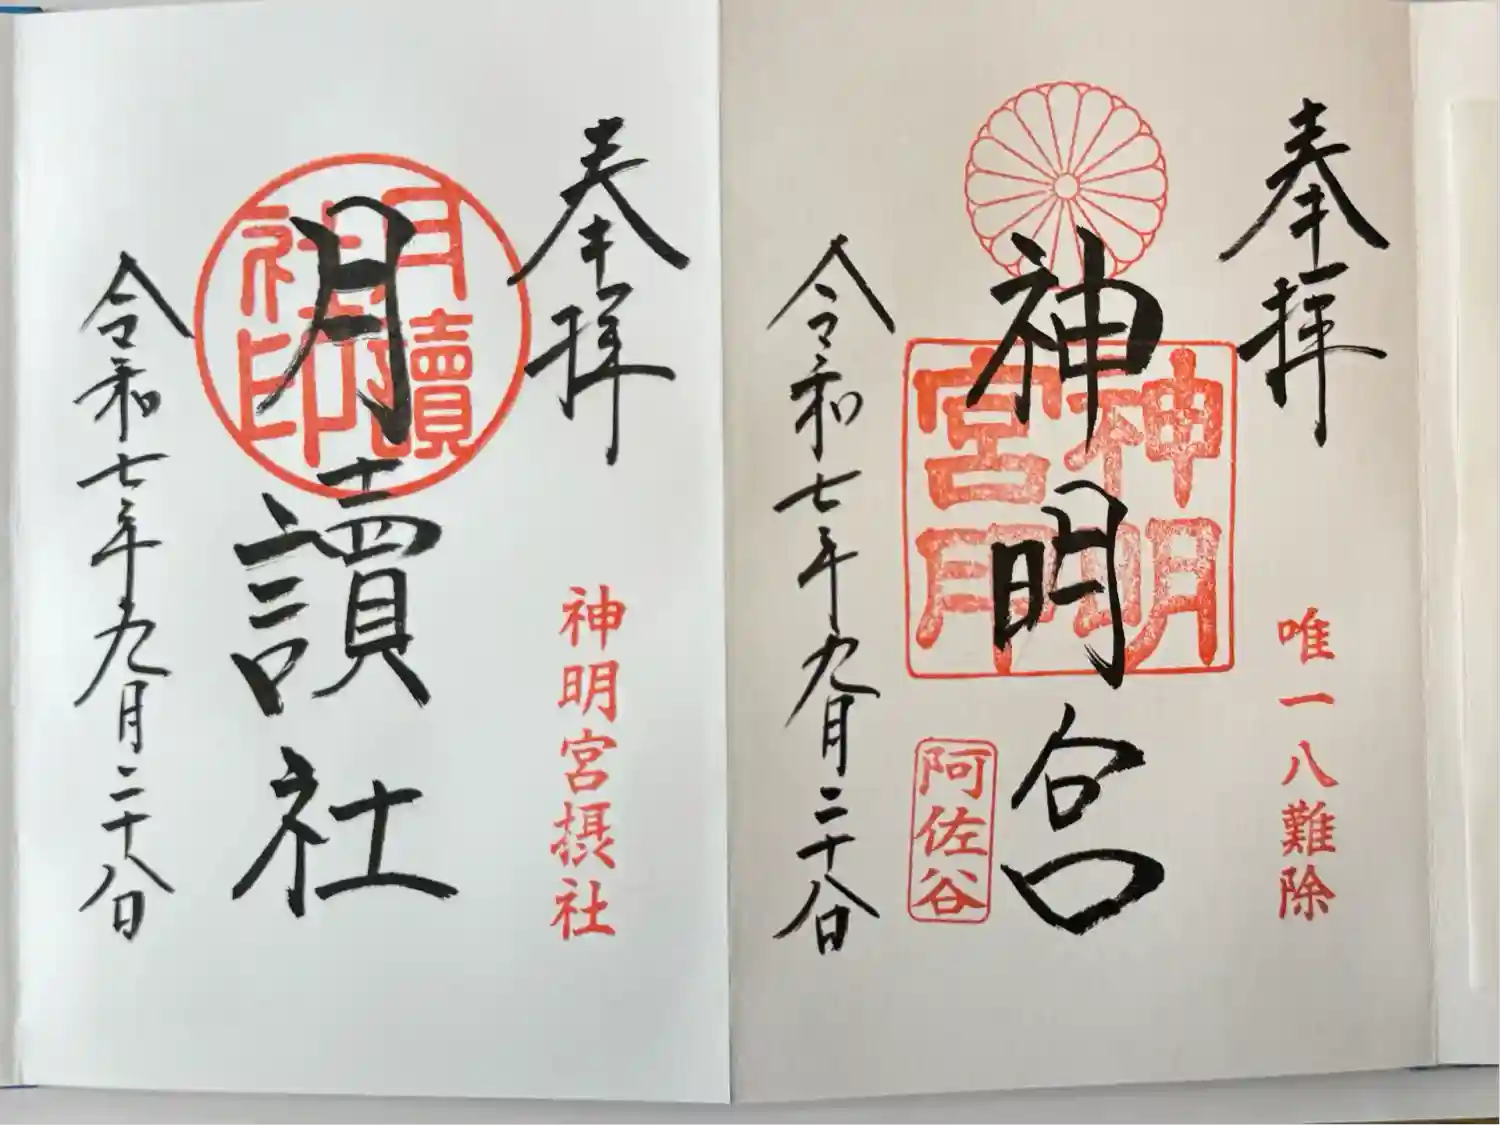 奉拝
唯一八難除
神明宮
神明
宮
阿佐谷
令和七年九月二十八日
奉拝
神明宮摂社
月讀社
月讀
社印
令和七年九月二十八日